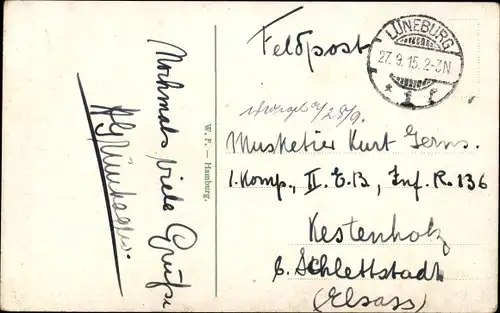 Feldpost
LÜNEBURG
27. 9. 15. 2-3N
* 1 f
28/9.
Musketier Kurt Gerns.
1. Komp., II. E.B., Inf. R. 136
Kestenholz
b. Schlettstadt
(Elsass)
W. F. – Hamburg.
Nochmals viele Grüße